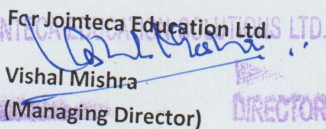 For Jointeca Education Ltd.
Vishal Mishra
(Managing Director)
DIRECTOR